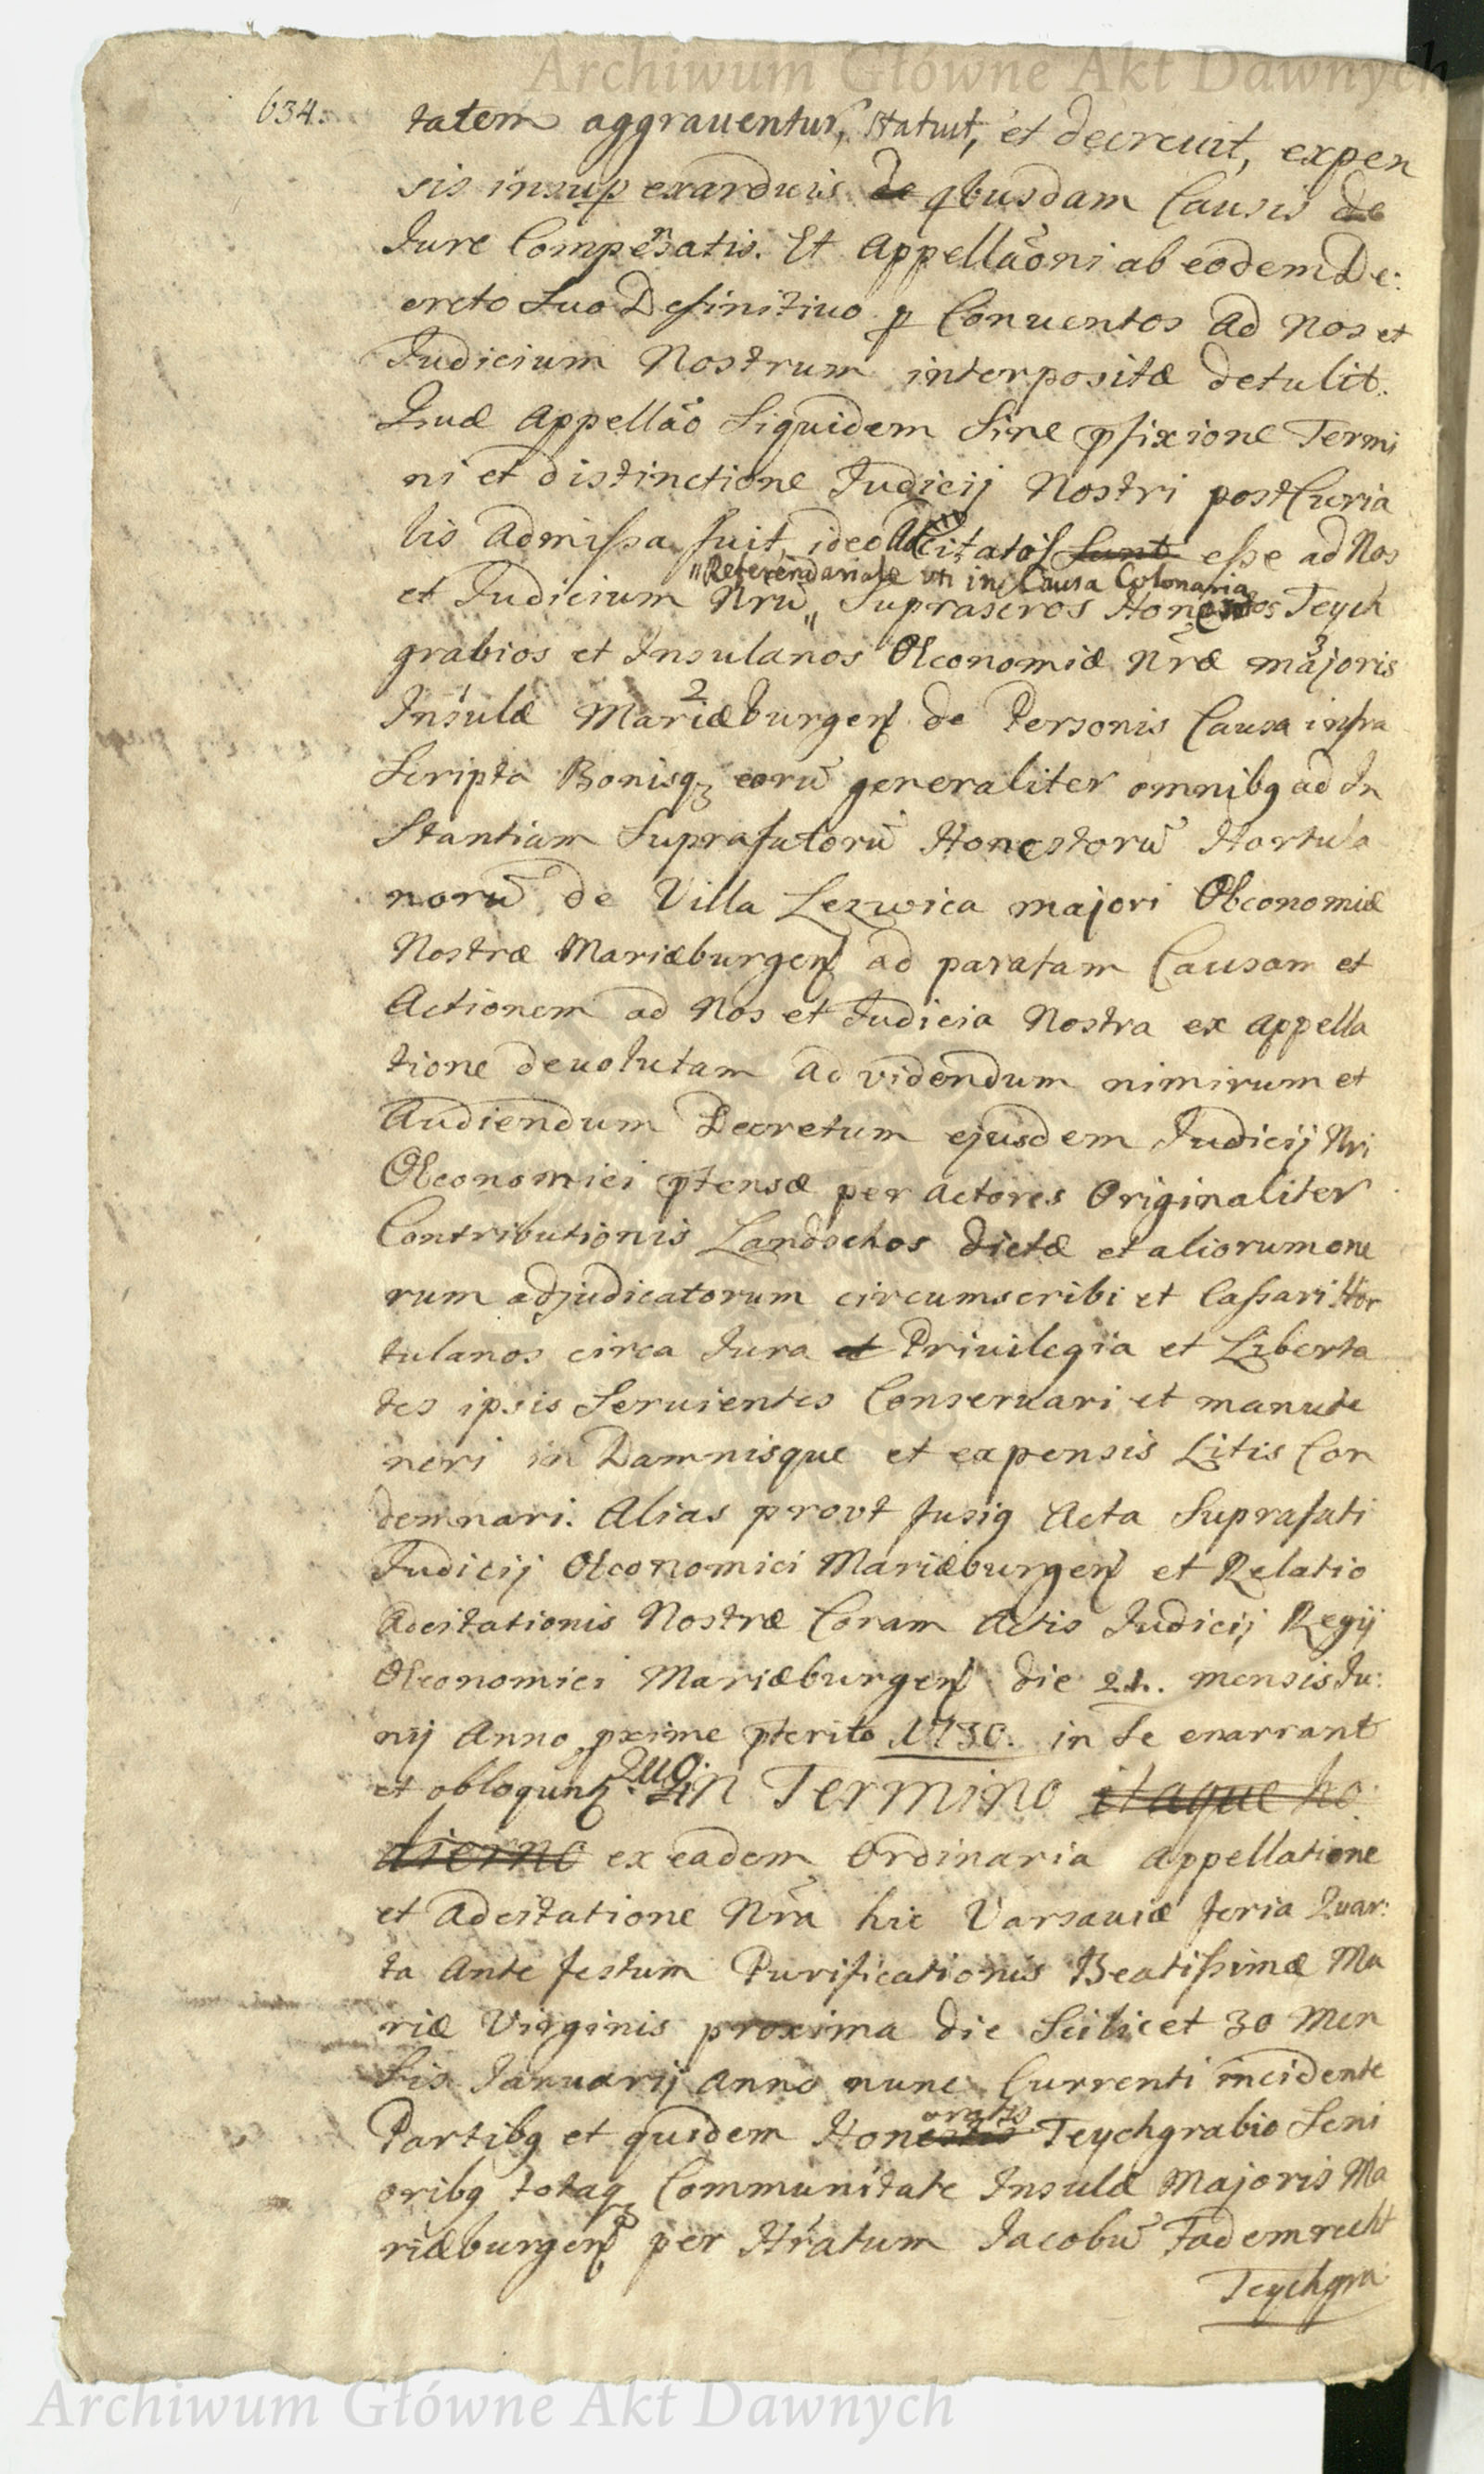 Archiwum Główne Akt Dawnych
634.
tatem aggrauentur, statuit, et decreuit, expen
sis insup exarduis de qbusdam Causis de
Jure Compensatis. Et Appellaõni ab eodem De:
creto Suo Definitiuo p Conuentos ad Nos et
Judicium Nostrum interpositæ detulit.
Quæ Appellaõ Siquidem Sine pfixione Termi
ni et distinctione Judicij Nostri postCuria
lis admissa fuit, ideo Adcitatos Sunt esse ad Nos
"Referendariale uti in Causa Colonaria
et Judicium Nrũ " Suprascros Honestos Teych
grabios et Insulanos Oeconomiæ Nræ majoris
Insulæ Mariæburgen de Personis Causa infra
Scripta Bonisq eorũ generaliter omnibq ad In
Stantiam Suprafatorũ Honestorũ Hortula
norũ de Villa Lezwica majori Oeconomiæ
Nostræ Mariæburgen ad paratam Causam et
Actionem ad Nos et Judicia Nostra ex appella
tione deuolutam ad videndum nimirum et
Audiendum Decretum ejusdem Judicij Nri
Oeconomici ptensæ per actores Originaliter
Contributionis Landschos dictæ et aliorum one
rum adjudicatorum circumscribi et Cassari Hor
tulanos circa Jura et Priuilegia et Liberta
tes ipsis Seruientes Conseruari et manute
neri in Damnisque et expensis Litis Con
demnari. Alias prout fusiq Acta Suprafati
Judicij Oeconomici Mariæburgen et Relatio
Adcitationis Nostræ Coram Actis Judicij Regij
Oeconomici Mariæburgen die 21. mensis Ju:
nij Anno pxime pterito 1730. in Se enarrant
et obloqunt. Quo in Termino itaque ho
dierno ex eadem Ordinaria Appellatione
et Adcitatione Nrã hic Varsauiæ feria Quar:
ta Ante festum Purificationis Beatissimæ Ma
riæ Virginis proxima die Scilicet 30 Men
Sis Januarij Anno nunc Currenti incidente
oratis
Partibq et quidem Honestis Teychgrabio Seni
oribq totaq Communitate Insulæ Majoris Ma
riæburgen per Hratum Jacobũ Fademrecht
Teychgra
Archiwum Główne Akt Dawnych